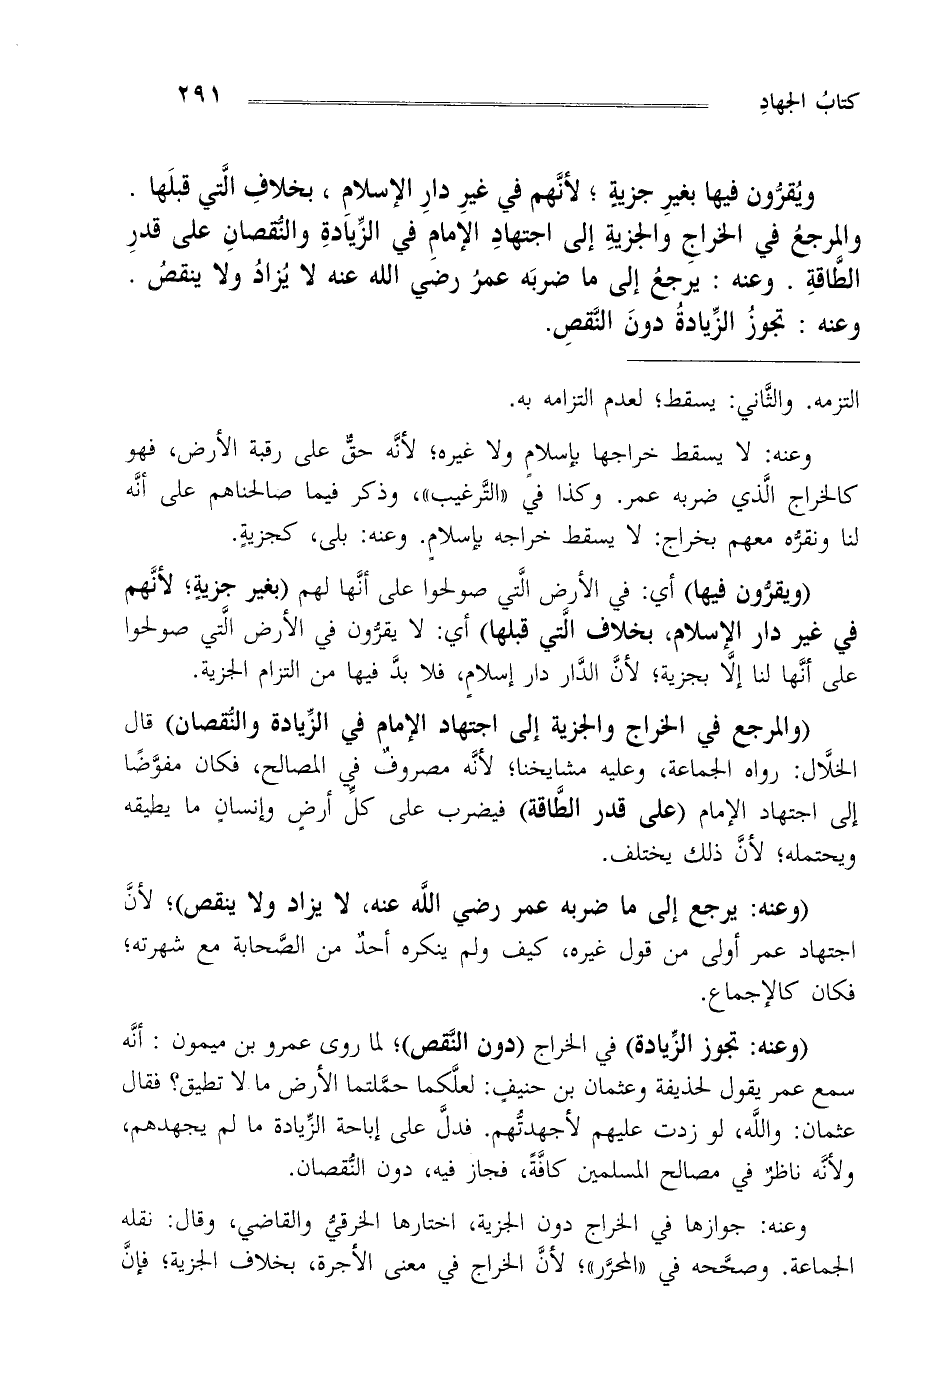 كتابُ الجهادِ ٢٩١
ويُقرُّون فيها بغيرِ جزيةٍ ؛ لأنَّهم في غيرِ دارِ الإسلامِ ، بخلافِ الَّتي قبلَها .
والمرجعُ في الخراجِ والجزيةِ إلى اجتهادِ الإمامِ في الزِّيادةِ والنُّقصانِ على قدرِ
الطَّاقةِ . وعنه : يرجعُ إلى ما ضربَه عمرُ رضي الله عنه لا يُزادُ ولا ينقصُ .
وعنه : تجوزُ الزِّيادةُ دونَ النَّقصِ.
التزمه. والثَّاني: يسقط؛ لعدم التزامه به.
وعنه: لا يسقط خراجها بإسلامٍ ولا غيره؛ لأنَّه حقٌّ على رقبة الأرض، فهو
كالخراج الَّذي ضربه عمر. وكذا في «التَّرغيب»، وذكر فيما صالحناهم على أنَّه
لنا ونقرُّه معهم بخراج: لا يسقط خراجه بإسلامٍ. وعنه: بلى، كجزيةٍ.
(ويقرُّون فيها) أي: في الأرض الَّتي صولحوا على أنَّها لهم (بغير جزيةٍ؛ لأنَّهم
في غير دار الإسلام، بخلاف الَّتي قبلها) أي: لا يقرُّون في الأرض الَّتي صولحوا
على أنَّها لنا إلَّا بجزية؛ لأنَّ الدَّار دار إسلامٍ، فلا بدَّ فيها من التزام الجزية.
(والمرجع في الخراج والجزية إلى اجتهاد الإمام في الزِّيادة والنُّقصان) قال
الخلَّال: رواه الجماعة، وعليه مشايخنا؛ لأنَّه مصروفٌ في المصالح، فكان مفوَّضًا
إلى اجتهاد الإمام (على قدر الطَّاقة) فيضرب على كلِّ أرضٍ وإنسانٍ ما يطيقه
ويحتمله؛ لأنَّ ذلك يختلف.
(وعنه: يرجع إلى ما ضربه عمر رضي اللَّه عنه، لا يزاد ولا ينقص)؛ لأنَّ
اجتهاد عمر أولى من قول غيره، كيف ولم ينكره أحدٌ من الصَّحابة مع شهرته؛
فكان كالإجماع.
(وعنه: تجوز الزِّيادة) في الخراج (دون النَّقص)؛ لما روى عمرو بن ميمون : أنَّه
سمع عمر يقول لحذيفة وعثمان بن حنيفٍ: لعلَّكما حمَّلتما الأرض ما لا تطيق؟ فقال
عثمان: واللَّه، لو زدت عليهم لأجهدتُّهم. فدلَّ على إباحة الزِّيادة ما لم يجهدهم،
ولأنَّه ناظرٌ في مصالح المسلمين كافَّةً، فجاز فيه، دون النُّقصان.
وعنه: جوازها في الخراج دون الجزية، اختارها الخرقيُّ والقاضي، وقال: نقله
الجماعة. وصحَّحه في «المحرَّر»؛ لأنَّ الخراج في معنى الأجرة، بخلاف الجزية؛ فإنَّ